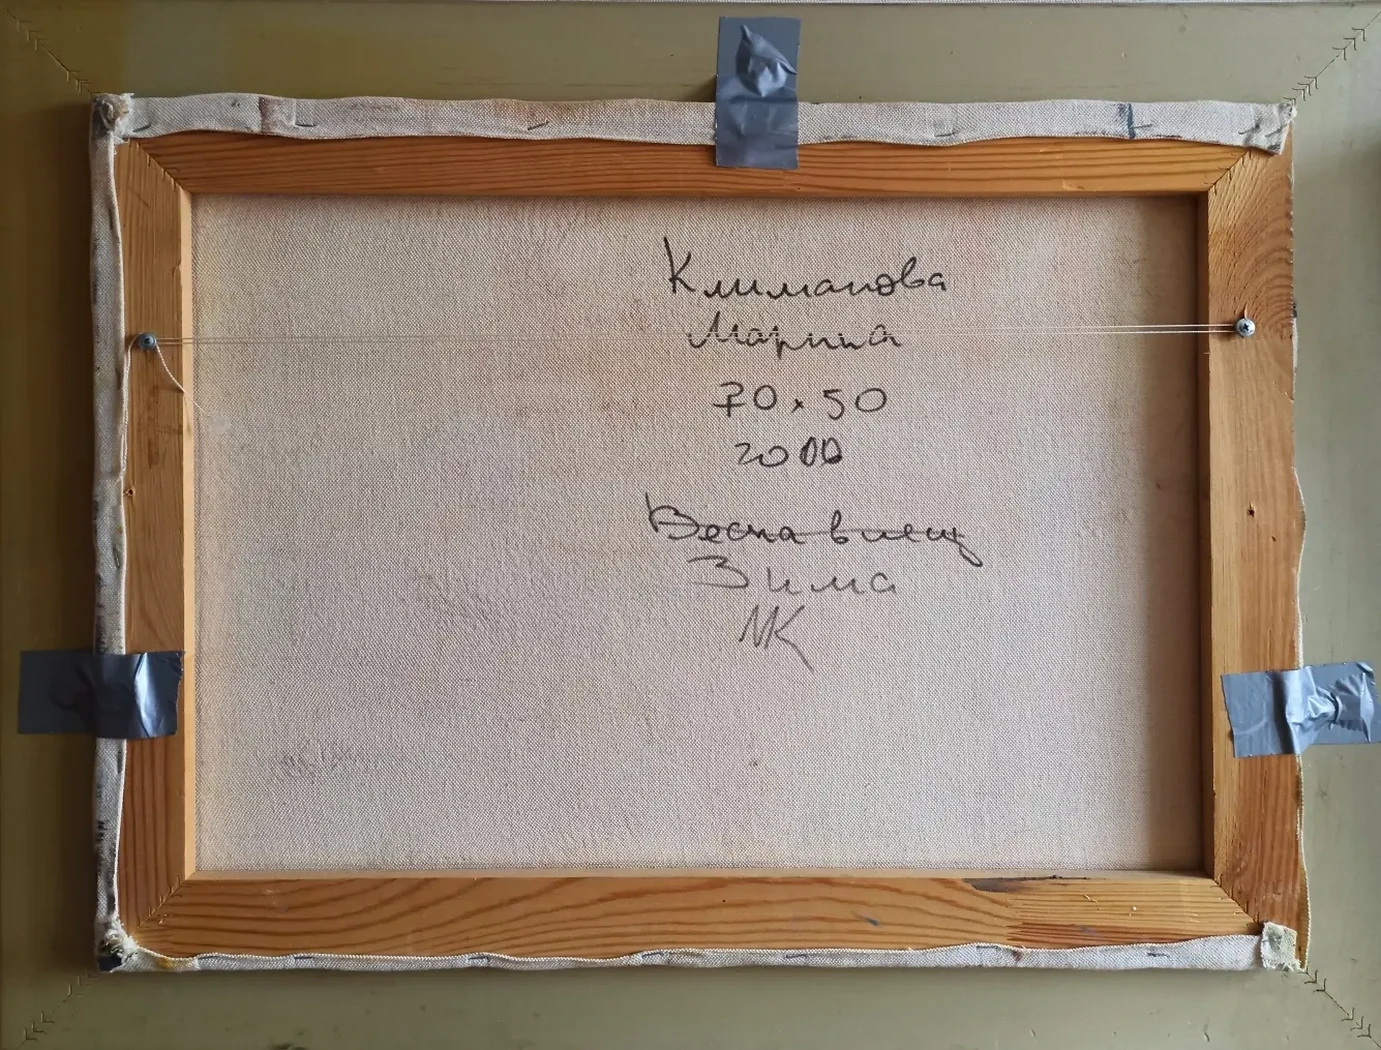 Климанова
Марина
70 x 50
2000
Весна в
Зима
МК